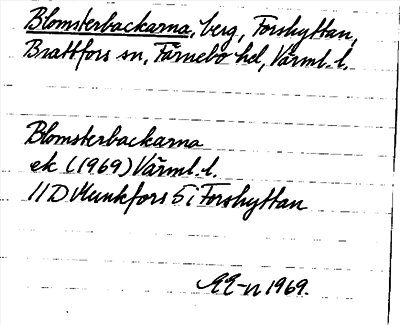 Blomsterbackarna, berg, Forshyttan,
Brattfors sn, Färnebo hd, Värml. l.
Blomsterbackarna
ek (1969) Värml. l.
11D Munkfors 5i Forshyttan
1969.